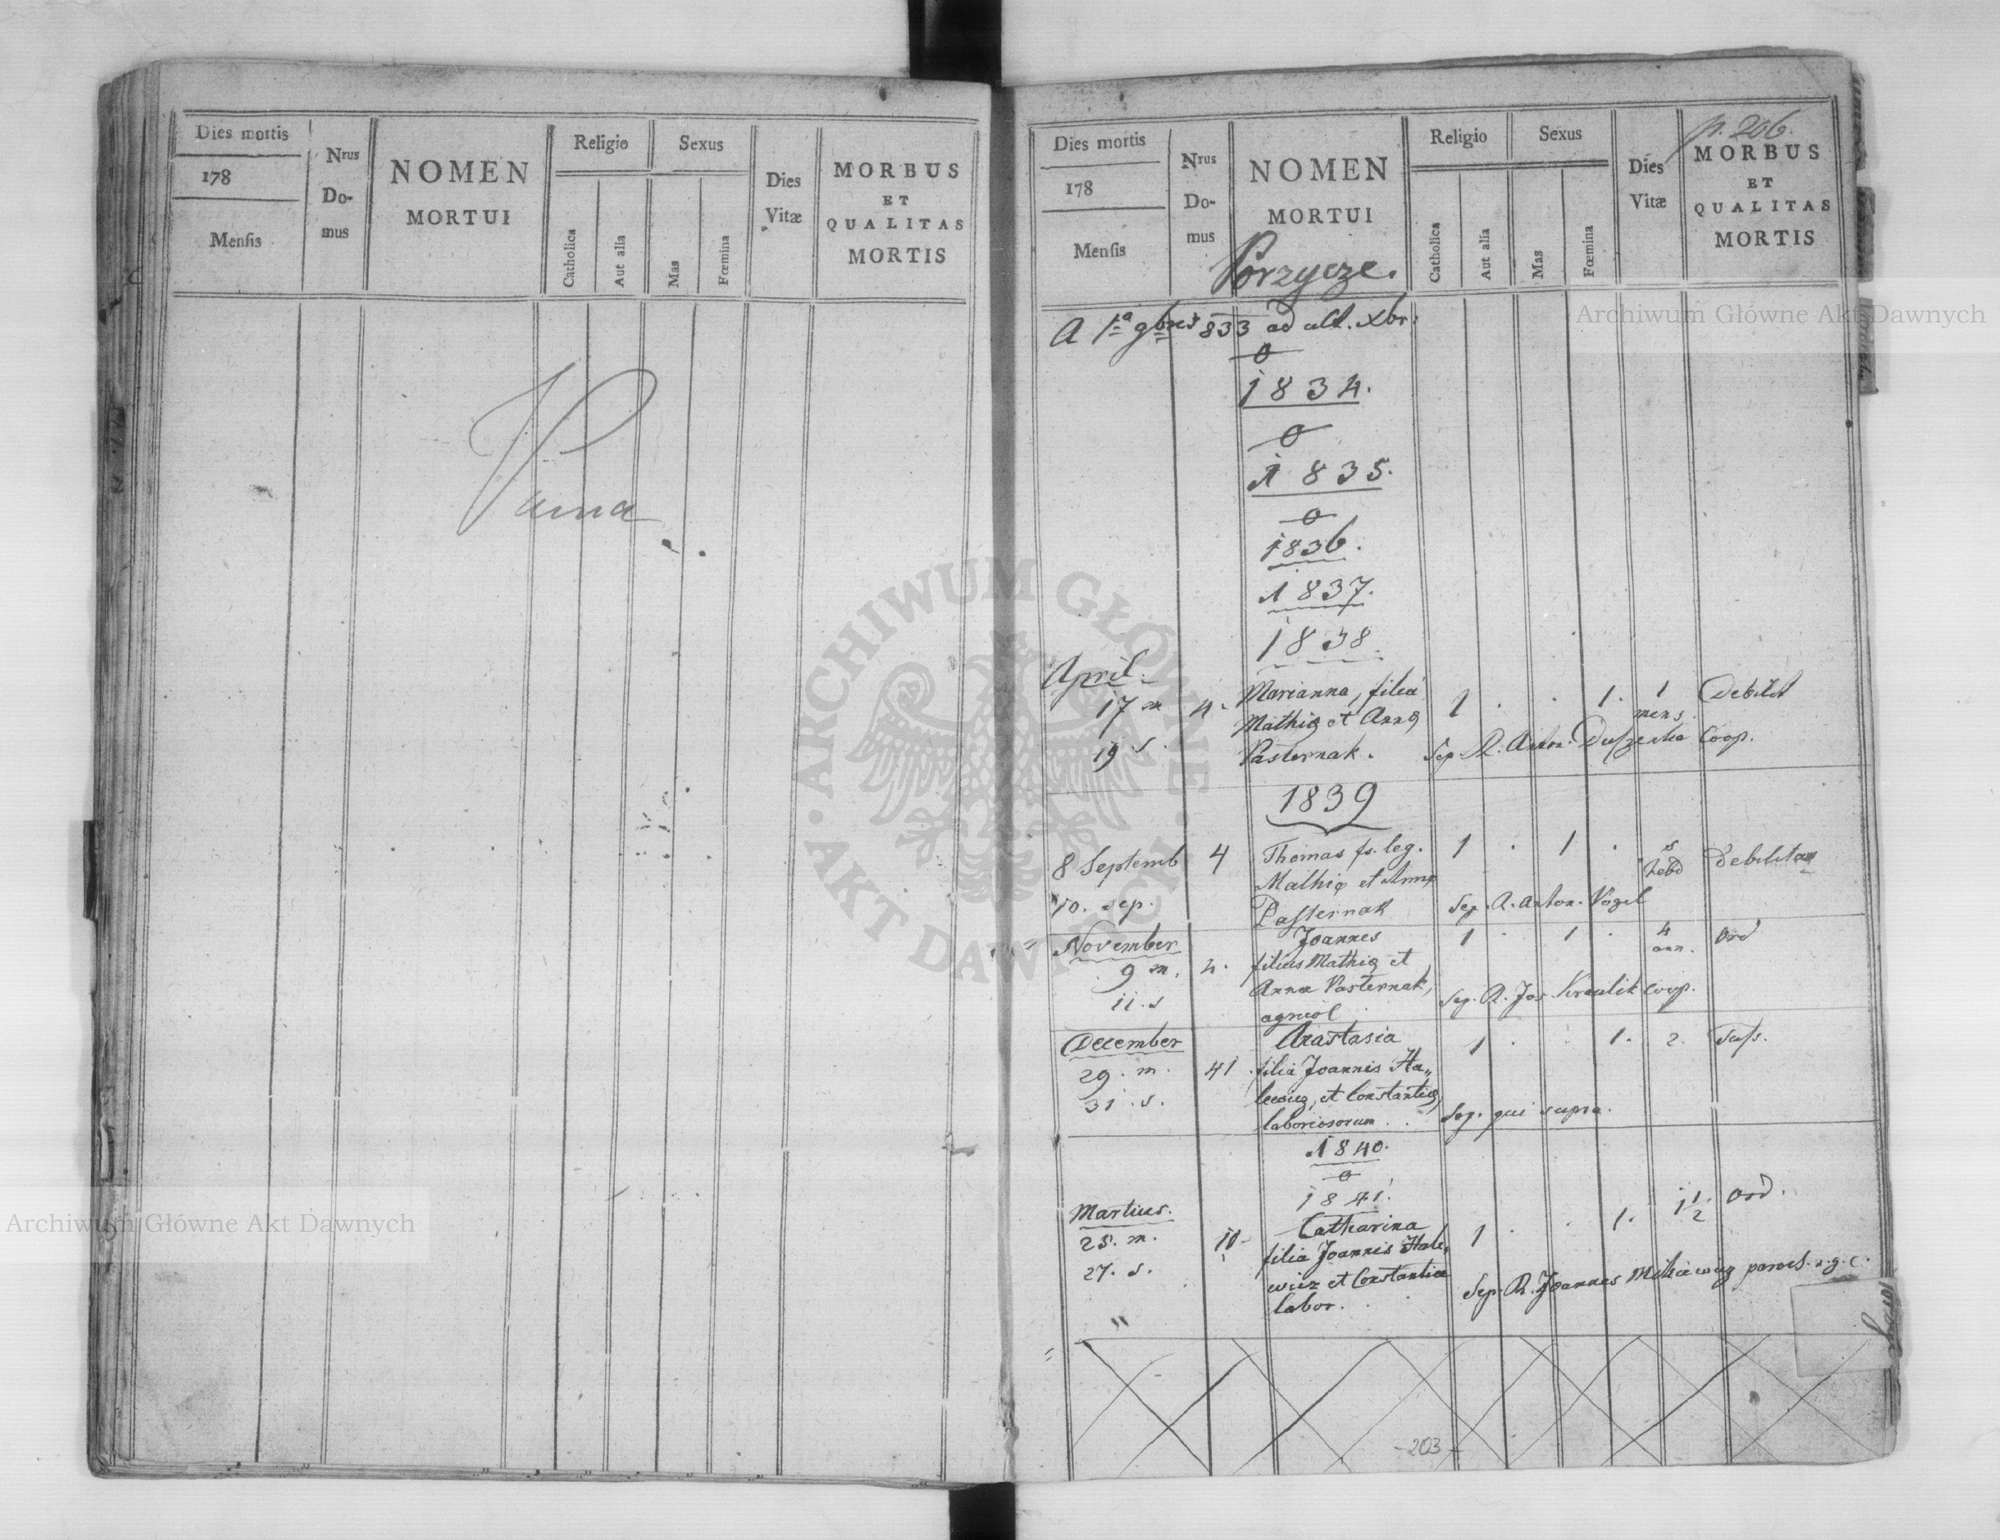 Dies mortis
178
Mensis
Nrus
Do-
mus
NOMEN
MORTUI
Religio
Catholica
Aut alia
Sexus
Mas
Fœmina
Dies
Vitæ
MORBUS
ET
QUALITAS
MORTIS
Vana
p. 206.
Dies mortis
178
Mensis
Nrus
Do-
mus
NOMEN
MORTUI
Religio
Catholica
Aut alia
Sexus
Mas
Fœmina
Dies
Vitæ
MORBUS
ET
QUALITAS
MORTIS
Porzycze.
A 1a 9bris 833 ad ult. Xbr:
0
1834.
0
1835.
0
1836.
1837.
1838.
April.
17 m 4. Marianna, filia 1 . . 1. 1 mens. Debilit
Mathiæ et Annæ
19 s. Pasternak. Sep. R. Anton. Coop.
1839
8 Septemb 4 Thomas fs. leg. 1 . 1 . Hebd Debilitas
Mathiæ et Annæ
10. sep. Pasternak Sep. R. Anton. Vogel
November Joannes 1 . 1 . 4 ann. Ord
9 m. 4. filius Mathiæ et
11. s Annæ Pasternak, Sep. R. Jos Kraulik Coop.
agricol
December Anastasia 1 . . 1. 2. Tuss.
29. m. 41. filia Joannis Ha„
31. s. lewicz, et Constantiæ,
laboriosorum . . Sep. qui supra.
1840.
0
1841.
Martius. Catharina 1 . . 1. 1 1/2 Ord.
25. m. filia Joannis Hale,
27. s. wicz et Constantiæ Sep. R. Joannes paroch. r. g. c.
" labor.
-203-
Archiwum Główne Akt Dawnych
Archiwum Główne Akt Dawnych
ARCHIWUM GŁÓWNE · AKT DAWNYCH ·